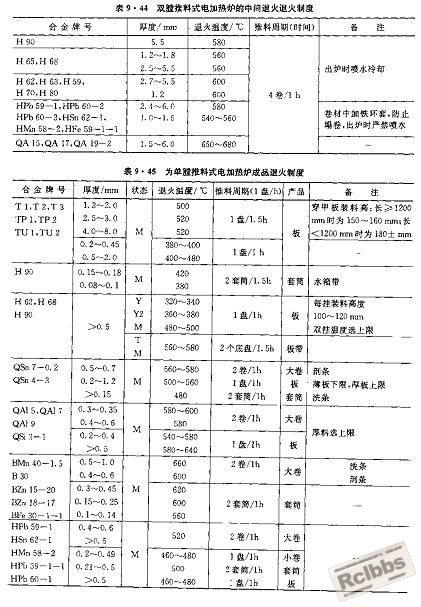 表 9·44 双膛推料式电加热炉的中间退火退火制度
合金牌号 厚度/mm 退火温度/℃ 推料周期(时间) 备注
H 90 5.5 580
H 65,H 68 1.2~1.8 560
2.5~5.5 560
出炉时喷水冷却
H 62,H 63,H 59, 2.7~5.5 600
H 70,H 80 1.2 600
4 卷/1 h
HPb 59-1,HPb 60-2 2.4~6.0 580
HPb 60-3,HSn 62-1, 1.0~1.5 540~560
HMn 58-2,HFe 59-1-1
卷材中加铁环套,防止
塌卷,出炉时严禁喷水
QA 15,QA 17,QA 19-2 1.5~6.0 650~680 —
表 9·45 为单膛推料式电加热炉成品退火制度
合金牌号 厚度/mm 状态 退火温度/℃ 推料周期(1盘/h) 产品 备注
T 1,T 2,T 3 1.3~2.0 500
TP 1,TP 2 2.5~3.0 520 1盘/1.5h
TU 1,TU 2 4.0~8.0 M 520 板
0.2~0.45 380~400
0.5~2.0 400~480 1盘/1h
穿甲板装料高:长≥1200
mm时为150~160mm;长
<1200 mm时为180±mm
H 90 0.15~0.18 M 420 2套筒/1.5h 套筒 水箱带
0.08~0.1 380
H 62,H 68 Y 320~340 每挂装料高度
H 90 Y2 360~380 1盘/1h 板 100~120 mm
>0.5 M 480~500 双挂温度选上限
T
M 550~580 2个底盘/1.5h 板带
QSn 7-0.2 0.5~0.7 560~580 2卷/1h 大卷 剖条
QSn 4-3 0.2~1.2 M 500~560 1盘/1h 板 薄板下限,厚板上限
>0.15 480 2套筒/1h 套筒 洗条
QAl 5,QAl 7 0.3~0.35 580~600
QAl 9 0.4~0.6 M 580 2卷/1h 大卷
QSi 3-1 0.2~0.4 540~580
>0.5 580~640 1盘/1h 板
厚料选上限
BMn 40-1.5 0.5~1.0 660 2卷/1h 洗条
B 30 0.4~0.6 600 大卷 剖条
BZn 15-20 0.3~0.45 M 620
BZn 18-17 0.15~0.25 600 2套筒/1h 套筒 —
BFe 30-1-1 0.1~0.14 560
HPb 59-1 0.4~0.6
HSn 62-1 >0.5 520 2卷/1h 大卷
HMn 58-2 0.2~0.49 M 460~480 1盘/1h 小卷 —
HPb 59-1-1 0.21~0.5 500 2套筒/1h 套筒
HPb 60-1 >0.5 460~480 1盘/1h 板
Rclbbs